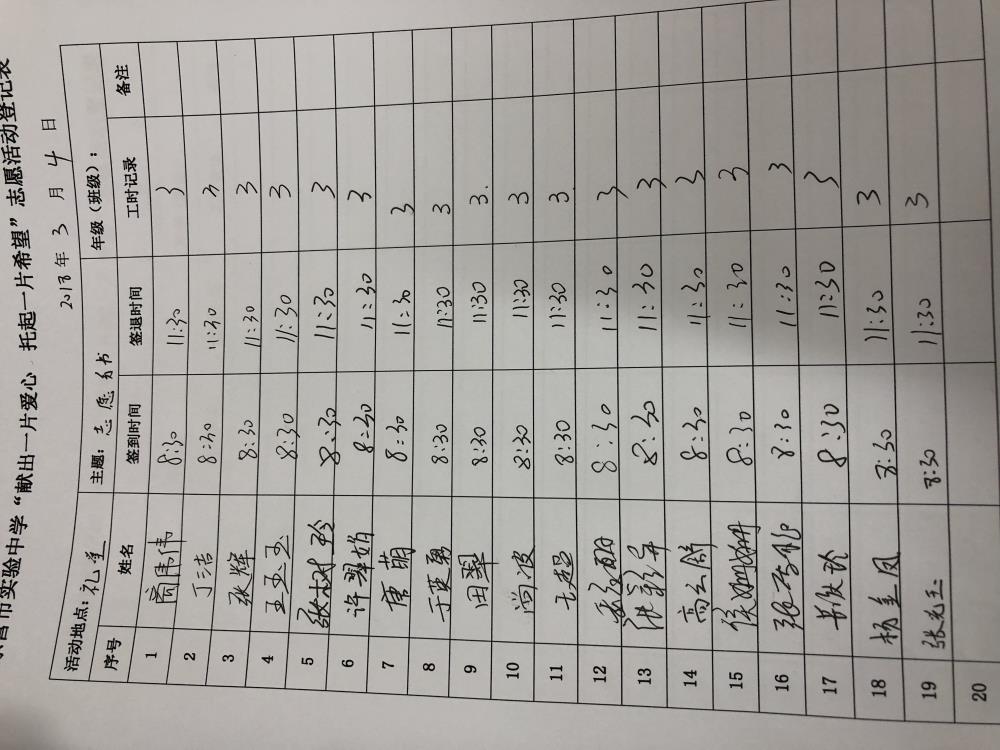 营市实验中学“献出一片爱心 托起一片希望”志愿活动登记表
2018年 3 月 4 日
活动地点：礼堂 主题：志愿 年级（班级）：
序号 姓名 签到时间 签退时间 工时记录 备注
1 商伟伟 8:30 11:30 3
2 丁洁 8:30 11:30 3
3 张辉 8:30 11:30 3
4 王玉玉 8:30 11:30 3
5 张 玲 8:30 11:30 3
6 许翠娟 8:30 11:30 3
7 唐萌 8:30 11:30 3
8 于英勇 8:30 11:30 3
9 田翠 8:30 11:30 3.
10 尚波 8:30 11:30 3
11 王超 8:30 11:30 3.
12 8:30 11:30 3
13 张 8:30 11:30 3
14 高云 8:30 11:30 3
15 侯姗姗 8:30 11:30 3
16 张 8:30 11:30 3
17 8:30 11:30 3
18 杨金凤 8:30 11:30 3
19 张 8:30 11:30 3
20